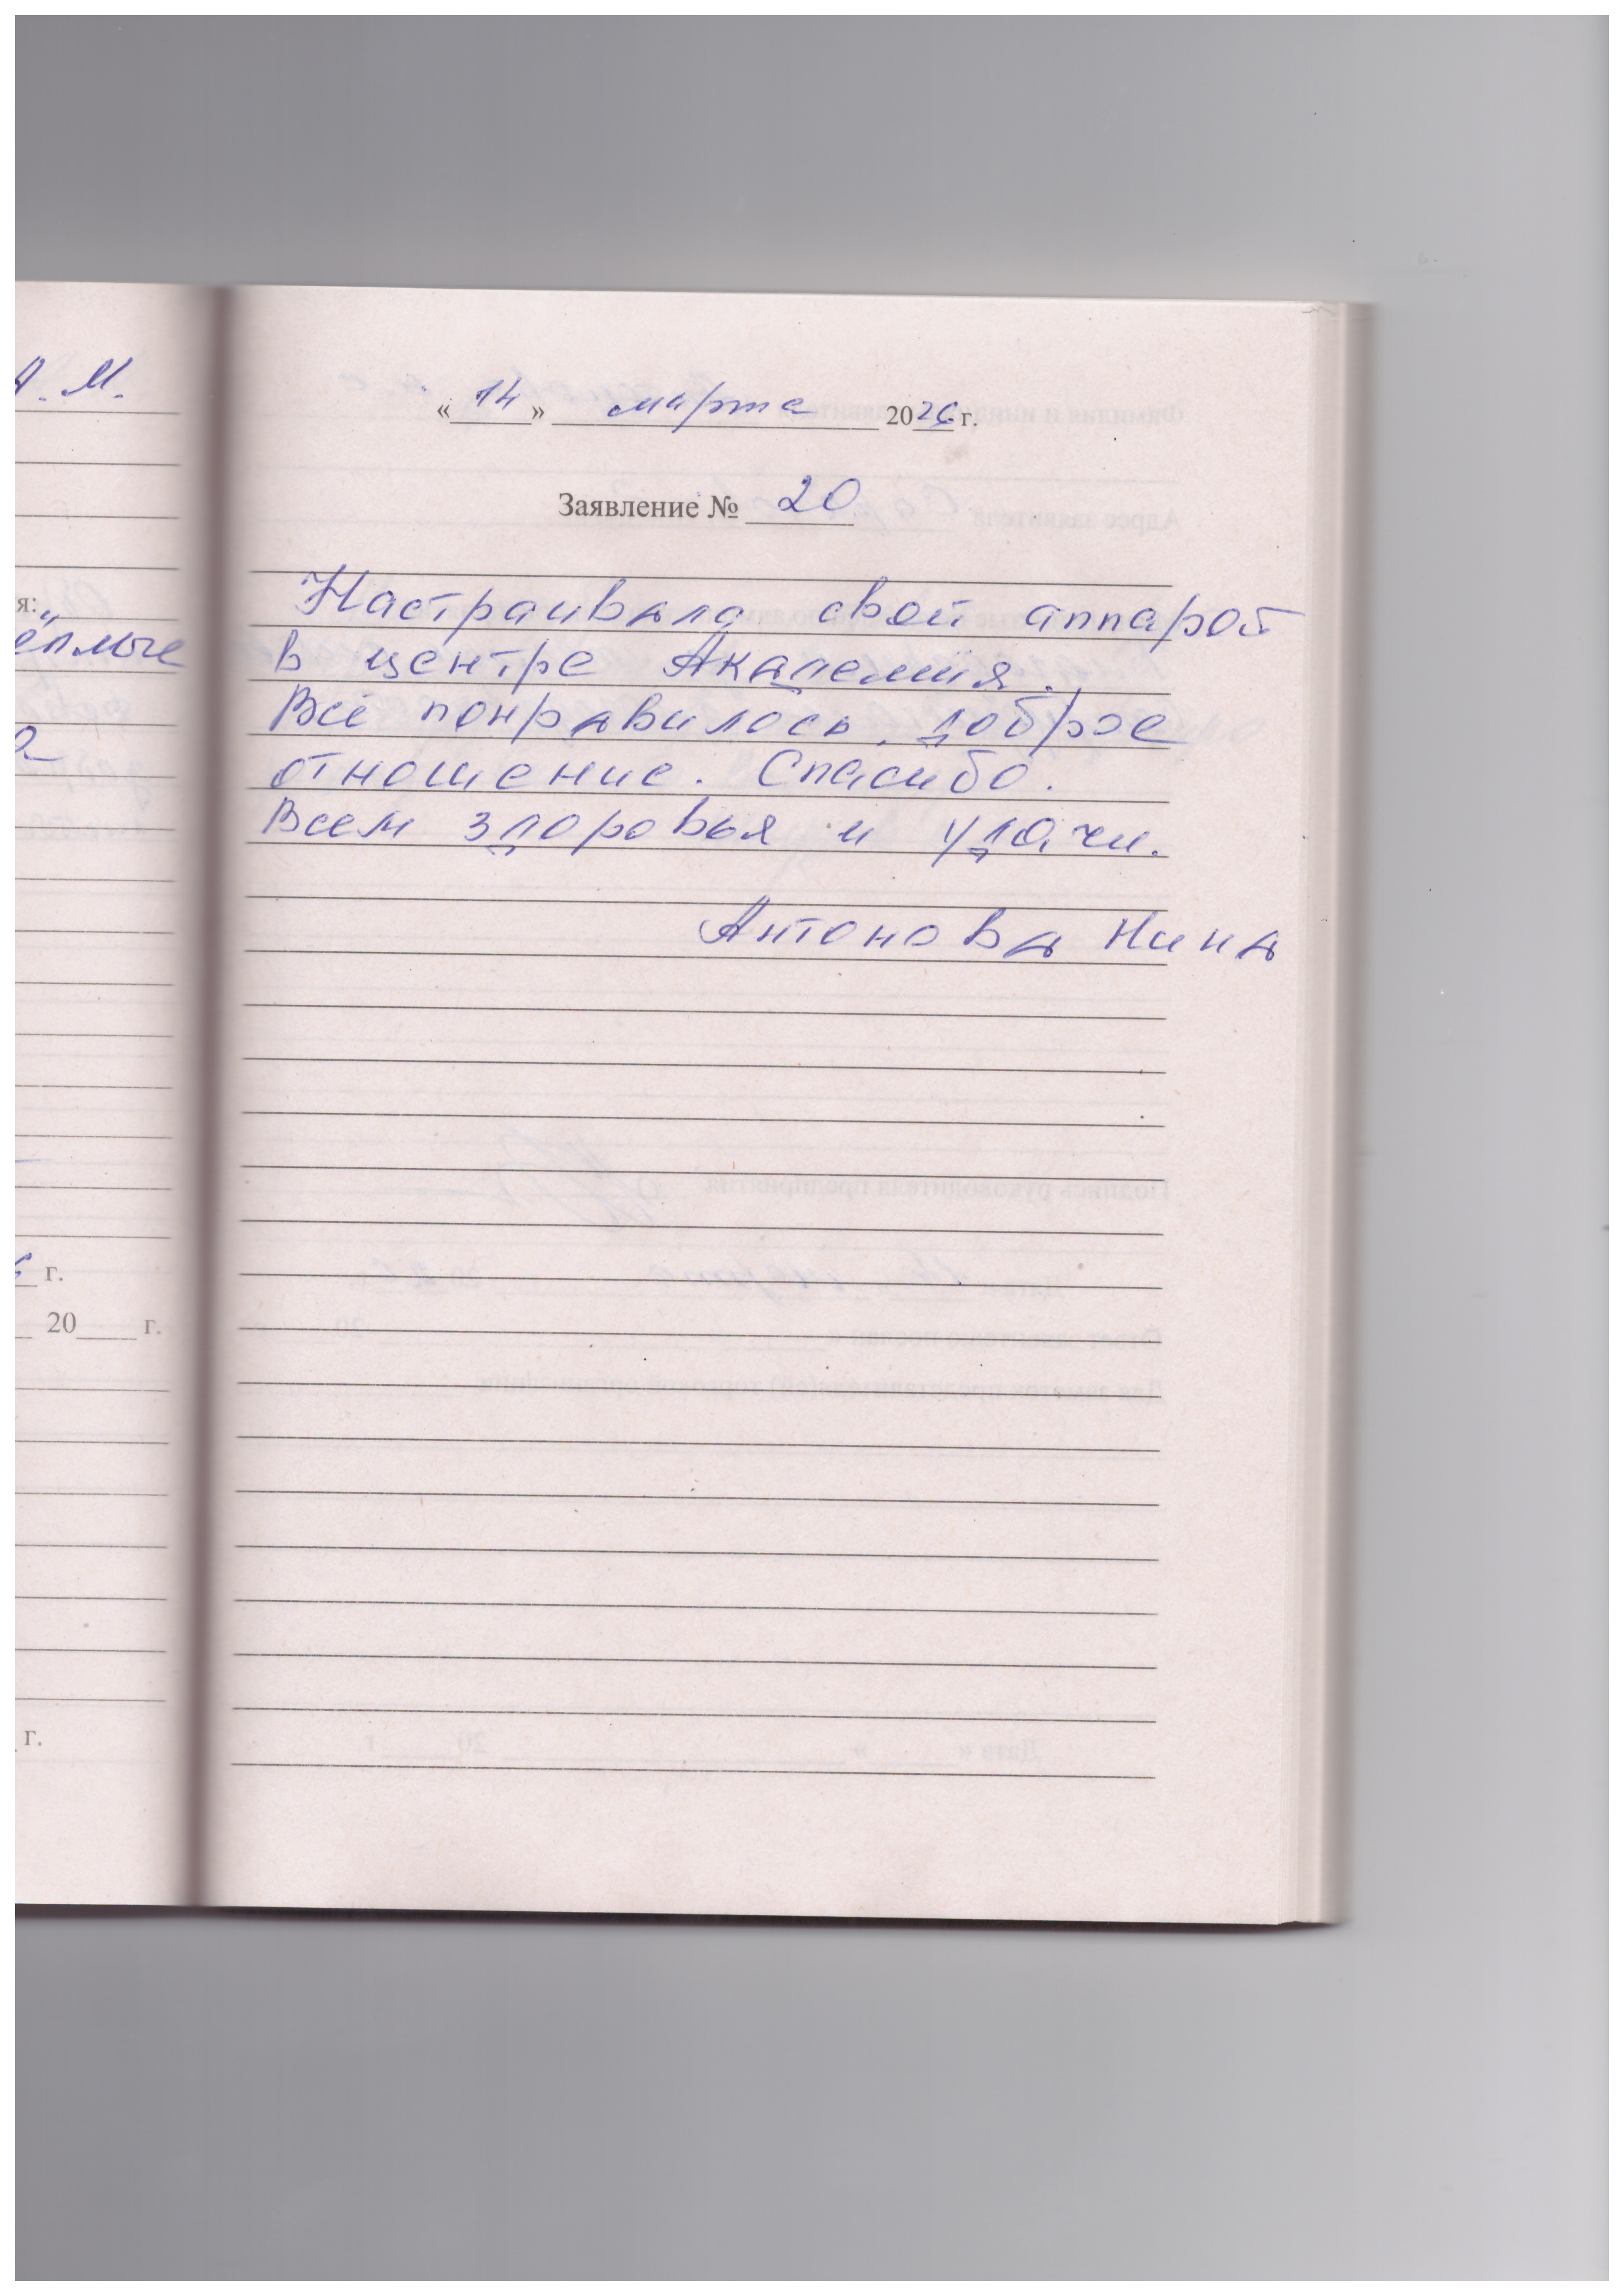 А. М.
«14» марта 2026 г.
Заявление № 20
Настраивала свой аппарат
в центре Академия.
Всё понравилось, доброе
отношение. Спасибо.
Всем здоровья и удачи.
Антонова Нина
я:
ёплые
г.
20 г.
г.